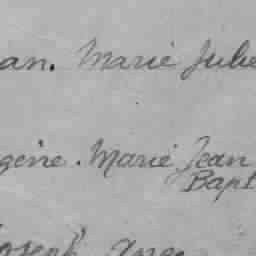 an. Marie Julie
gène. Marie Jean
Bapt
Joseph Ange